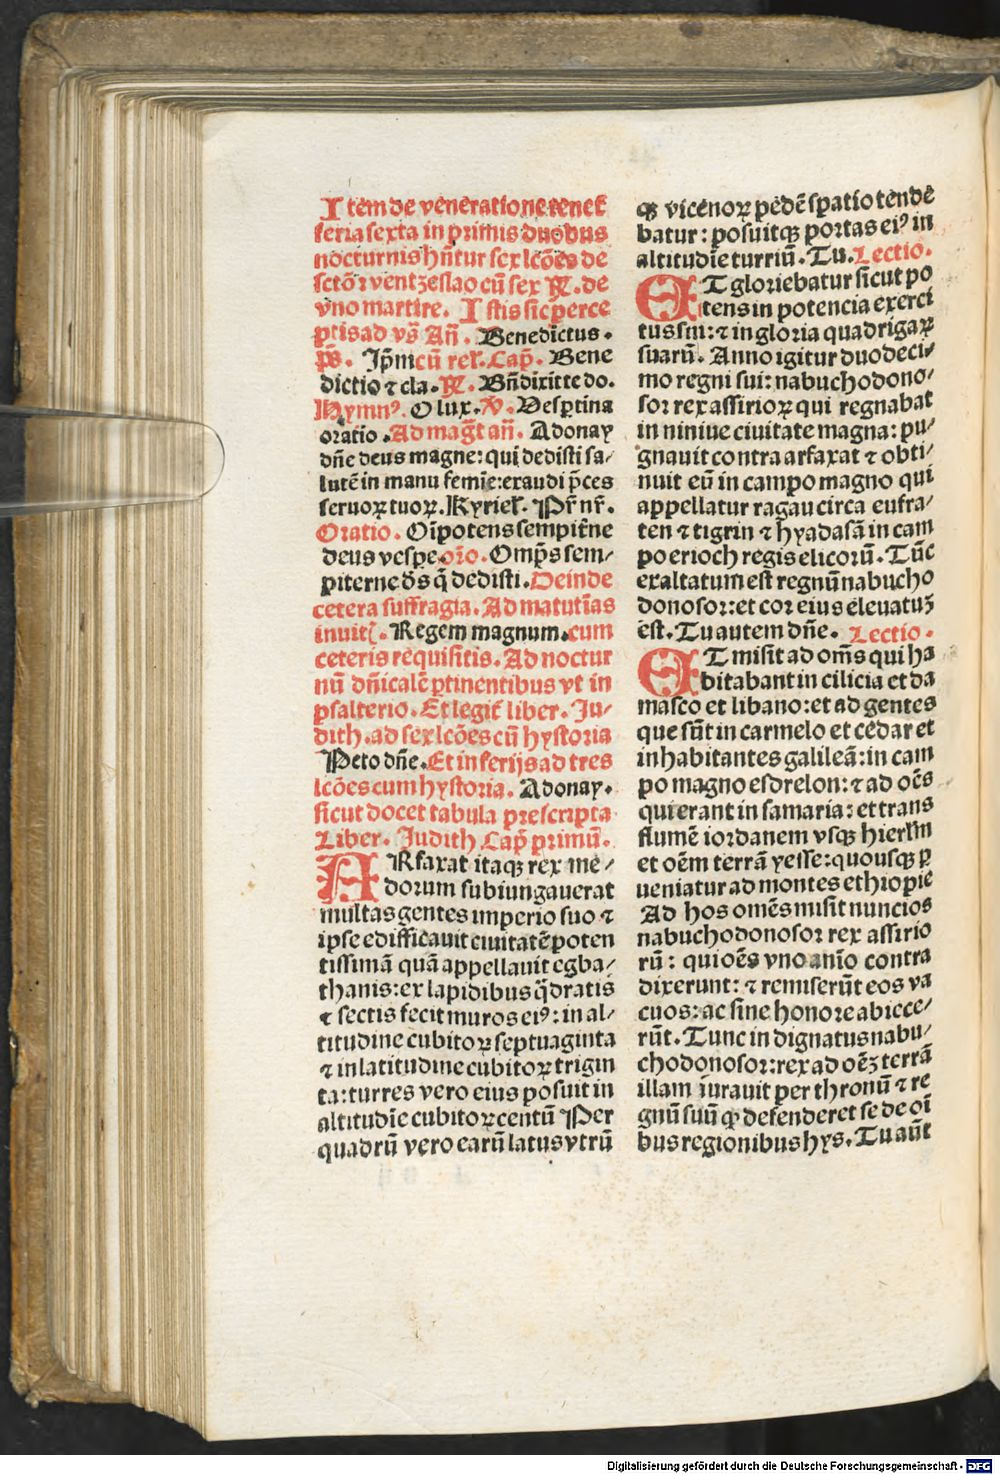 Item de veneratione tenet᷒
feria sexta in primis duobus
nocturnis hn̄tur sex lcōes de
sctō ꝛ ventzeslao cū sex ℞. de
vno martire. Istis sic ꝑce
ptis ad vs̄ Añ. Benedictus.
p̄s. Ip̄m cū rel̓. Cap̄. Bene
dictio ⁊ cla. ℞. Bn̄dixit te do.
Hymnꝰ. O lux. ℣. Vesꝑtina
oratio. Ad mag̅t añ. Adonay
dn̄e deus magne: qui dedisti sa⸗
lutē in manu femīe: exaudi p̄ces
seruoꝝ tuoꝝ. Kyriel̓. Pr̄ nr̄.
Oratio. Oīpotens sempit̄ne
deus vesꝑe. oro. Omp̄s sem⸗
piterne ds̄ q̄ dedisti. Deinde
cetera suffragia. Ad matutīas
inuit. Regem magnum. cum
ceteris requisitis. Ad noctur
nū dn̄icalē ꝑtinentibus vt in
psalterio. Et legit᷒ liber. Ju⸗
dith. ad sex lcōes cū hystoria
Peto dn̄e. Et in ferijs ad tres
lcōes cum hystoria. Adonay.
sicut docet tabula prescripta
Liber. Judith Cap̄ primū.
ARfaxat itaqꝫ rex me⸗
dorum subiungauerat
multas gentes imperio suo ⁊
ipse edifficauit ciuitatē poten
tissimā quā appellauit egba⸗
thanis: ex lapidibus q̄dratis
⁊ sectis fecit muros eiꝰ: in al⸗
titudine cubitoꝝ septuaginta
⁊ in latitudine cubitoꝝ trigin
ta: turres vero eius posuit in
altitudīe cubitoꝝ centū Per
quadrū vero earū latus vtrū
qꝫ vicenoꝝ pedē spatio tende
batur: posuitqꝫ portas eiꝰ in
altitudīe turriū. Tu. Lectio.
ET gloriebatur sicut po
tens in potencia exerci
tus sui: ⁊ in gloria quadrigaꝝ
suarū. Anno igitur duodeci⸗
mo regni sui: nabuchodono⸗
sor rex assirioꝝ qui regnabat
in niniue ciuitate magna: pu⸗
gnauit contra arfaxat ⁊ obti⸗
nuit eū in campo magno qui
appellatur ragau circa eufra⸗
ten ⁊ tigrin ⁊ hyadasā in cam
po erioch regis elicorū. Tūc
exaltatum est regnū nabucho
donosor: et cor eius eleuatuꝫ
est. Tu autem dn̄e. Lectio.
ET misit ad om̄s qui ha
bitabant in cilicia et da
masco et libano: et ad gentes
que sūt in carmelo et cedar et
inhabitantes galileā: in cam
po magno esdrelon: ⁊ ad oēs
qui erant in samaria: et trans
flumē iordanem vsqꝫ hierl̄m
et oēm terrā yesse: quousqꝫ ꝑ
ueniatur ad montes ethiopie
Ad hos omēs misit nuncios
nabuchodonosor rex assirio
rū: qui oēs vno anīo contra
dixerunt: ⁊ remiserūt eos va
cuos: ac sine honore abiece⸗
rūt. Tunc indignatus nabu⸗
chodonosor: rex ad oēꝫ terrā
illam iurauit per thronū ⁊ re
gnū suū ꝙ defenderet se de oī
bus regionibus hys. Tu aūt
Digitalisierung gefördert durch die Deutsche Forschungsgemeinschaft - DFG